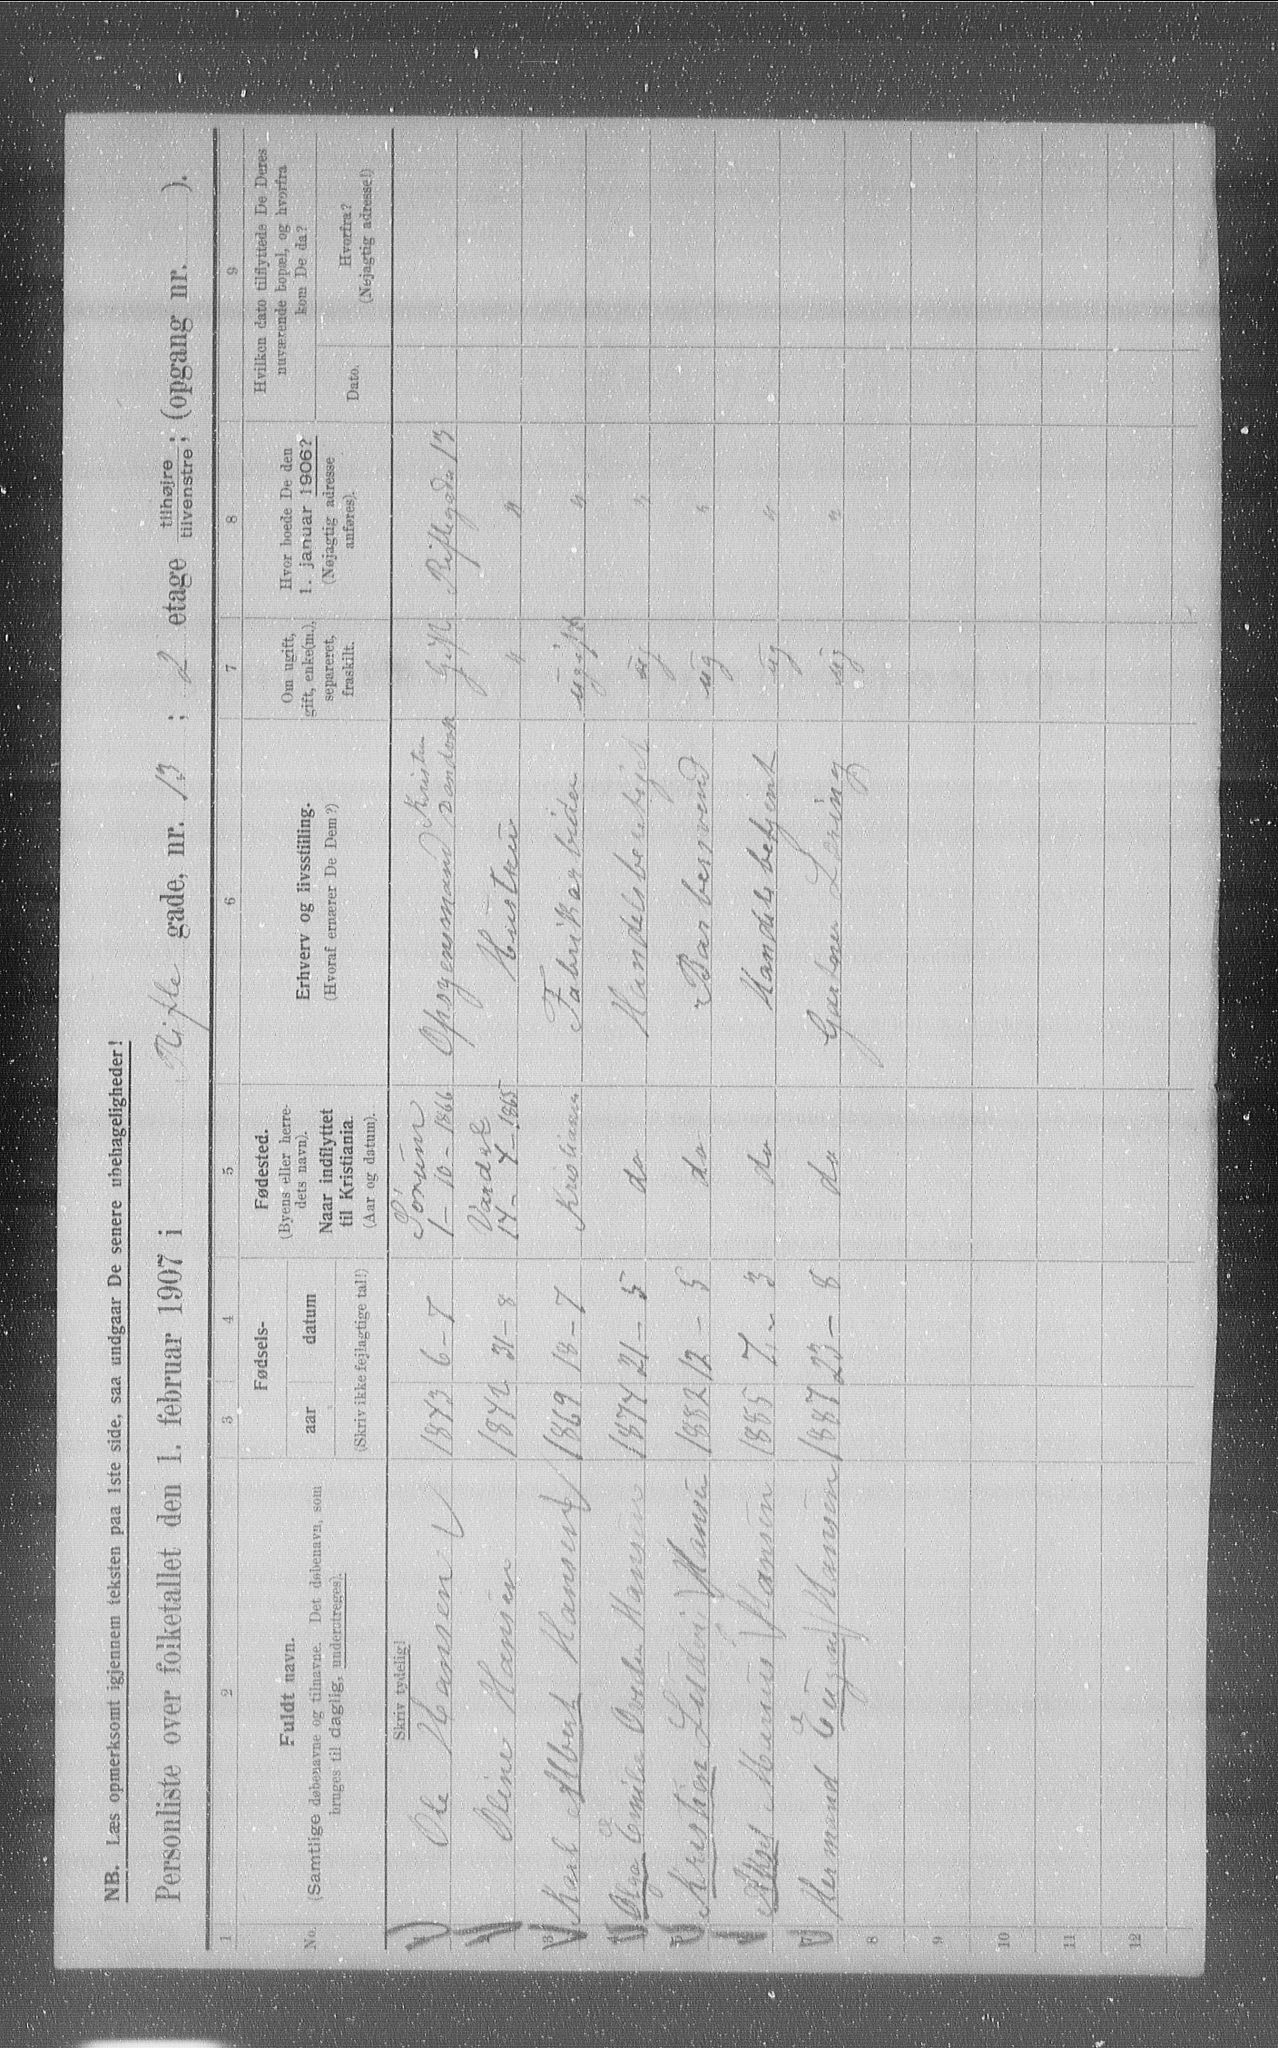 NB. Læs opmerksomt igjennem teksten paa 1ste side, saa undgaar De senere ubehageligheder!
Personliste over folketallet den 1. februar 1907 i Rifle gade, nr. 13 ; 2 etage tilhøjre / tilvenstre ; (opgang nr. ).
1 2 3 4 5 6 7 8 9
No.
Fuldt navn.
(Samtlige døbenavne og tilnavne. Det døbenavn, som
bruges til daglig, understreges).
Fødsels-
aar datum
(Skriv ikke fejlagtige tal!)
Fødested.
(Byens eller herre-
dets navn).
Naar indflyttet
til Kristiania.
(Aar og datum).
Erhverv og livsstilling.
(Hvoraf ernærer De Dem?)
Om ugift,
gift, enke(m.),
separeret,
fraskilt.
Hvor boede De den
1. januar 1906?
(Nøjagtig adresse
anføres).
Hvilken dato tilflyttede De Deres
nuværende bopæl, og hvorfra
kom De da?
Dato.
Hvorfra?
(Nøjagtig adresse!)
Skriv tydelig!
1 Ole Hansen 1843 6-7 Sørum 1-10-1866 Opsynsmand Gift Riflegade 13
2 Oline Hansen 1842 31-8 17-4-1865 Hustru " "
3 Karl Albert Hansen 1869 18-7 Kristiania Fabrikarbider ugift "
4 Olga Emilie Hansen 1874 21-5 do ug "
5 Kristian Hansen 1882 12-5 do Barbersvend ug "
6 Hansen 1885 7-3 do Handelsbetjent ug "
7 Hermand Eugen Hansen 1887 23-8 do Gartner ug "
8
9
10
11
12